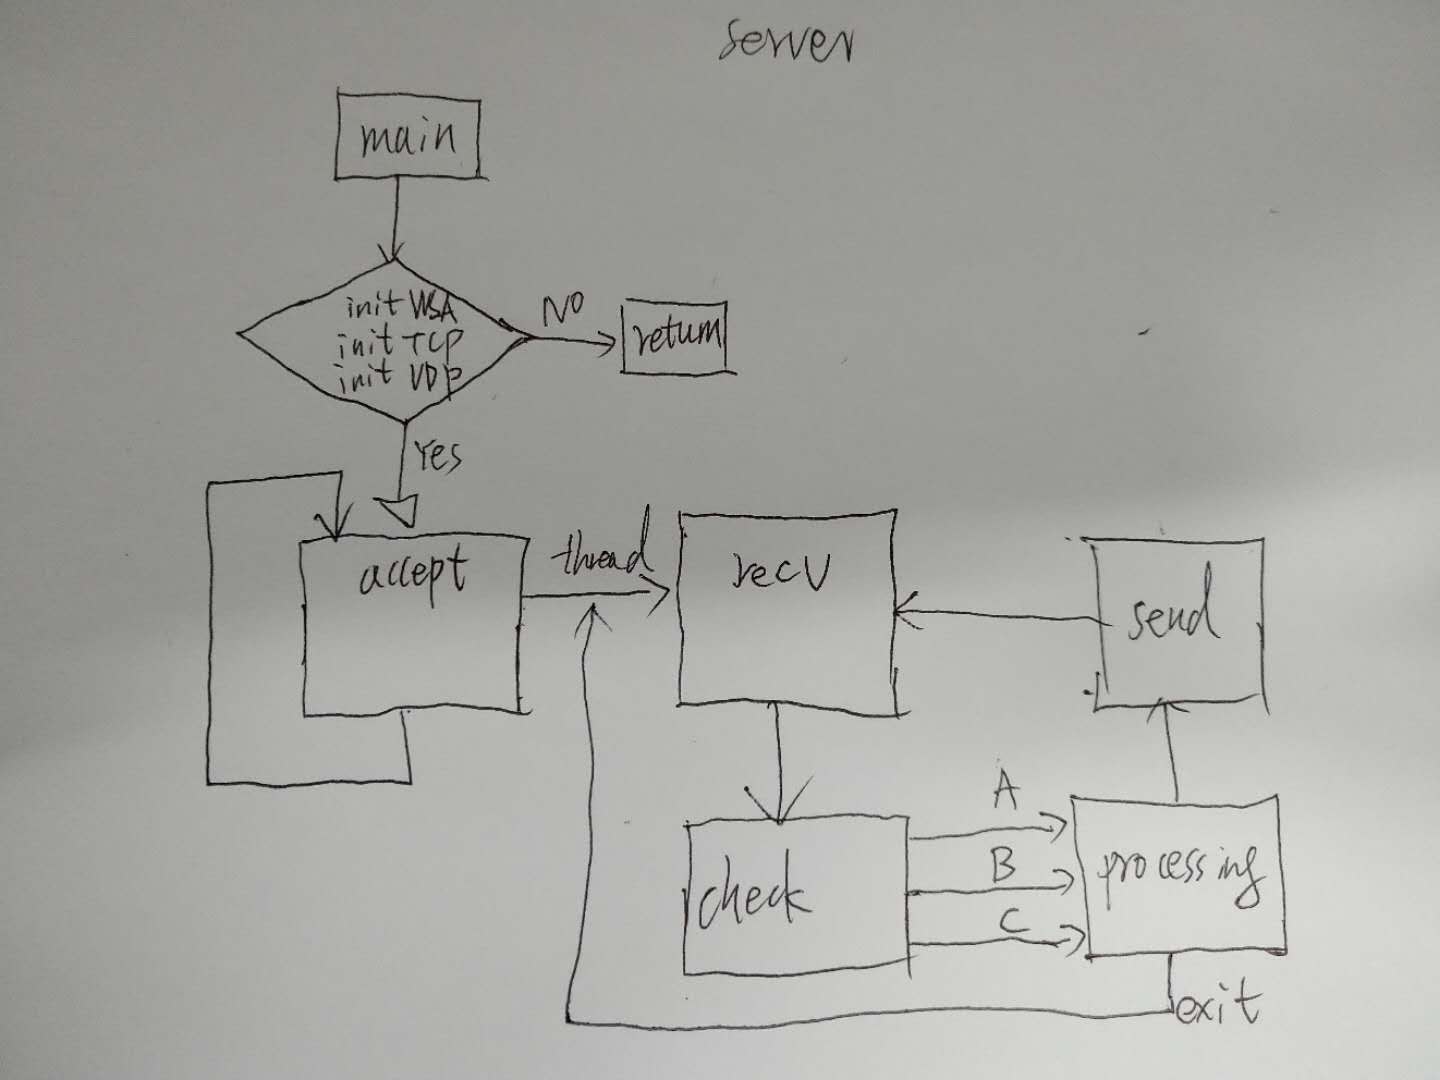 server
main
init WSA
init TCP
init UDP
No
return
Yes
accept
thread
recv
send
check
A
B
C
processing
exit